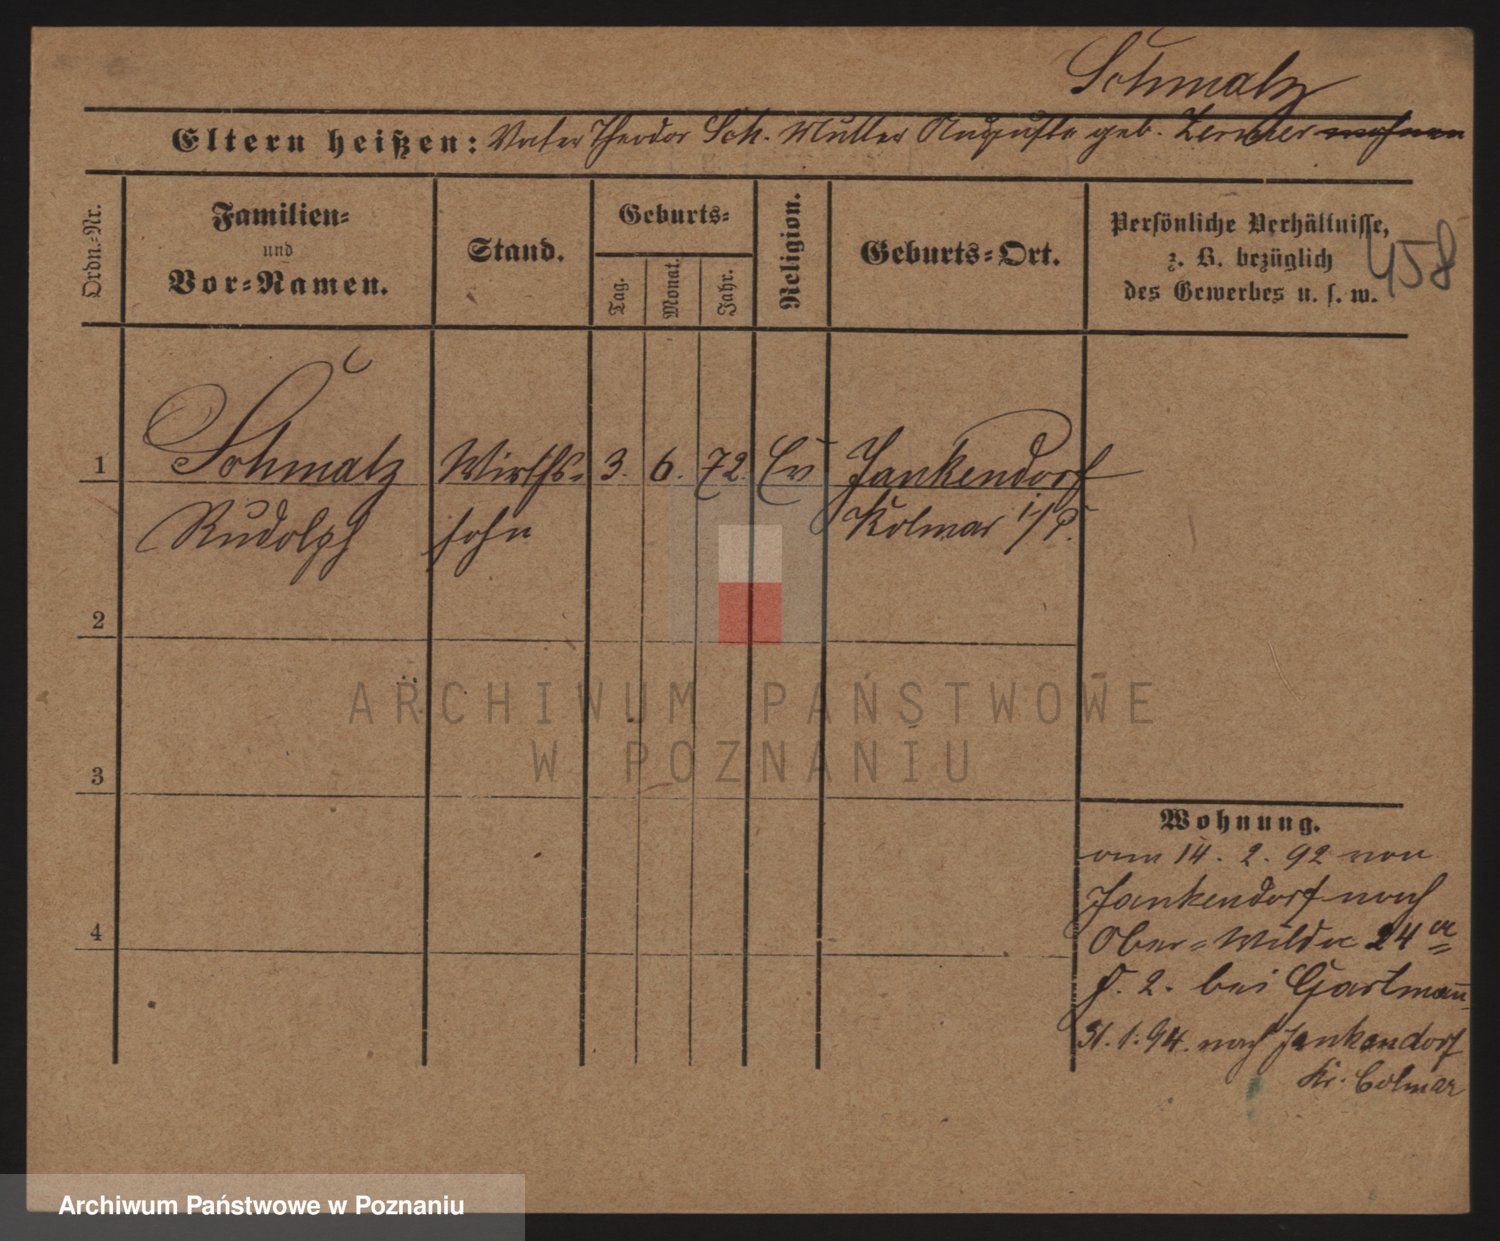 Schmalz
Eltern heißen: Vater Theodor Sch. Mutter Auguste geb. wohnen
Ordn.-Nr.
Familien-
und
Vor-Namen.
Stand.
Geburts-
Tag.
Monat.
Jahr.
Religion.
Geburts-Ort.
Persönliche Verhältnisse,
z. B. bezüglich
des Gewerbes u. s. w.
458
1 Schmalz Wirths- 3. 6. 72. Ev Jankendorf
Rudolph sohn Kolmar i/P.
2
3
4
Wohnung.
am 14. 2. 92 von
Jankendorf nach
Ober-Wilda 24a
P. 2. bei Gartmann
31.1.94. nach Jankendorf
Kr. Colmar
ARCHIWUM PAŃSTWOWE
W POZNANIU
Archiwum Państwowe w Poznaniu